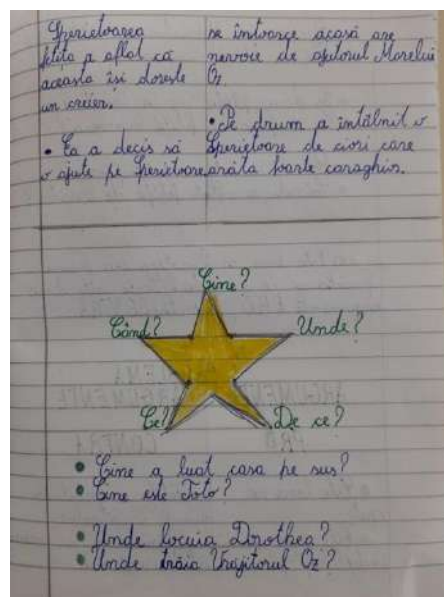 Sperietoarea
fetița a aflat că
aceasta își dorește
un creier.
• Ea a decis să
o ajute pe Sperietoare.
se întoarce acasă are
nevoie de ajutorul Marelui
Oz.
• Pe drum a întâlnit o
Sperietoare de ciori care
arăta foarte caraghios.
Cine?
Când?
Unde?
Ce?
De ce?
• Cine a luat casa pe sus?
• Cine este Toto?
• Unde locuia Dorothea?
• Unde trăia Vrăjitorul Oz?